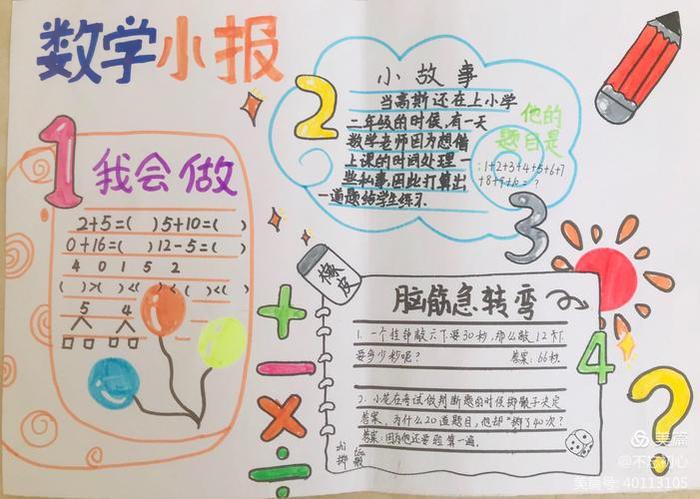 数学小报
1
我会做
2+5=( ) 5+10=( )
0+16=( ) 12-5=( )
4 0 1 5 2
( )>( )<( )<( )<( )
5 4
2
小故事
当高斯还在上小学
二年级的时候,有一天
数学老师因为想借
上课的时间处理一
些私事,因此打算出
一道题给学生练习.
他的
题目是
:1+2+3+4+5+6+7
+8+9+10=?
3
橡皮
脑筋急转弯
1. 一个挂钟敲六下要30秒,那么敲12下
要多少秒呢? 答案:66秒.
2. 小花在考试做判断题的时候掷骰子决定
答案,为什么20道题目,他却"掷了40次?
答案:因为他还要验算一遍.
4
+
-
×
÷
?
美篇
@不忘初心
美篇号:40113105